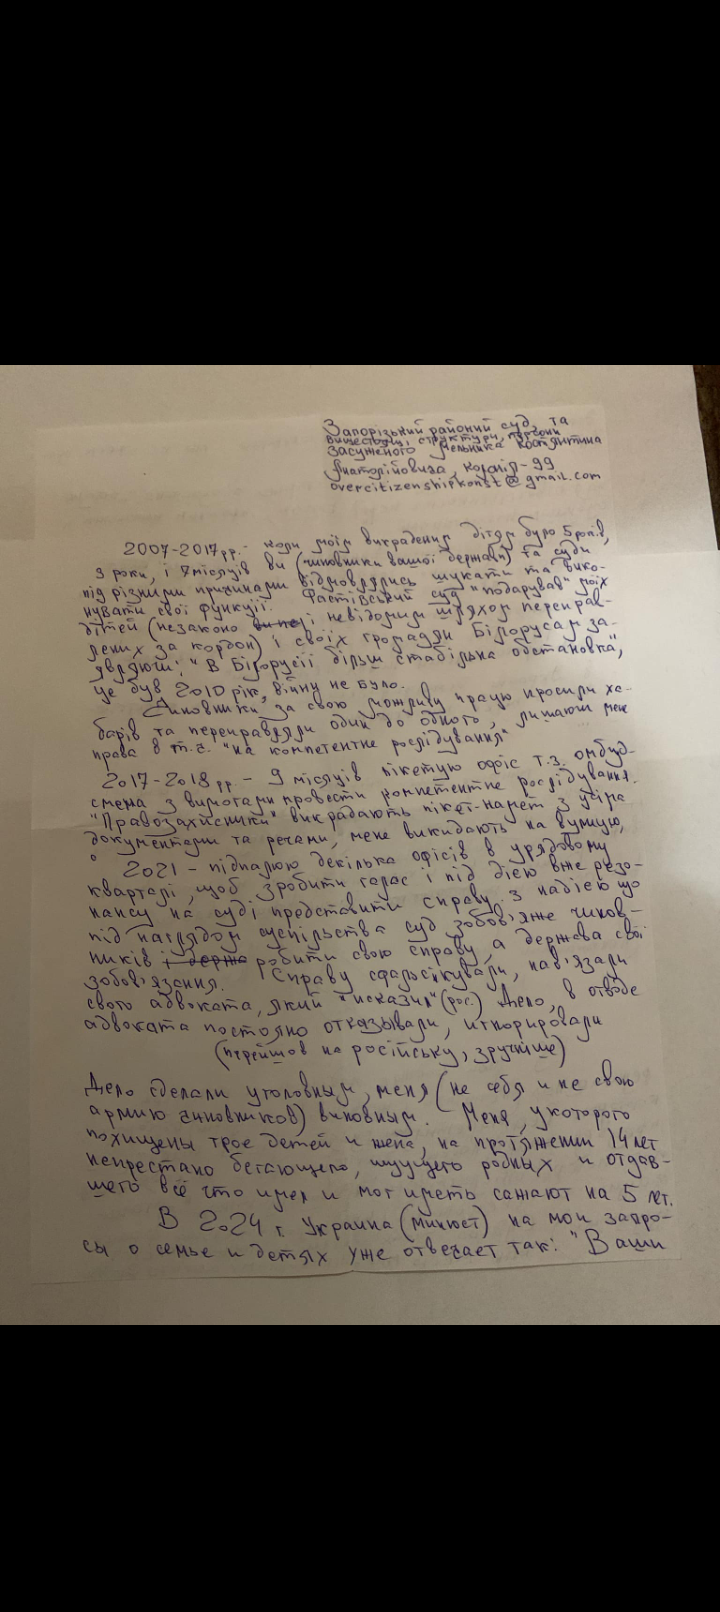 Запорізький районий суд, та
вищестоящі структури, персони
засуженого Мельника Костянтина
Анатолійовича, колонія-99
overcitizenshipkonst@gmail.com
2007-2017рр.- коли моїм викраденим дітям було 5 років,
3 роки, і 7 місяців ви (чиновники вашої держави) та суди
під різними причинами відмовлялись шукати та вико-
нувати свої функції. Фастівський суд "подарував" моїх
дітей (незаконо і невідомим шляхом переправ-
лених за кордон) і своїх громадян Білорусам за-
являючи: "В Білорусії більш стабільна обстановка",
це був 2010 рік, війни не було.
Чиновники за свою можливу працю просили ха-
барів та переправляли один до одного, лишаючи мене
права в т.ч. "на компетентне розслідування"
2017-2018 рр - 9 місяців пікетую офіс т.з. омбуд-
смена з вимогами провести компетентне розслідування.
"Правозахисники" викрадають пікет-намет з усіма
документами та речами, мене викидають на вулицю,
2021 - підпалюю декілька офісів в урядовому
кварталі, щоб зробити галас і під дією вже резо-
нансу на суді представити справу з надією що
під наглядом суспільства суд зобов'яже чинов-
ників і держа робити свою справу, а держава свої
зобов'язення. Справу сфальсікували, нав'язали
свого адвоката, який "исказил" (рос.) Дело, в отводе
адвоката постояно отказывали, игнорировали
(перейшов на російську, зручніше)
Дело сделали уголовным, меня (не себя и не свою
армию чиновников) виновным. Меня, у которого
похищены трое детей и жена, на протяжении 14 лет
непрестано бегающего, ищущего родных и отдав-
шего всё что имел и мог иметь сажают на 5 лет.
В 2024 г. Украина (минюст) на мои запро-
сы о семье и детях уже отвечает так: "Ваши